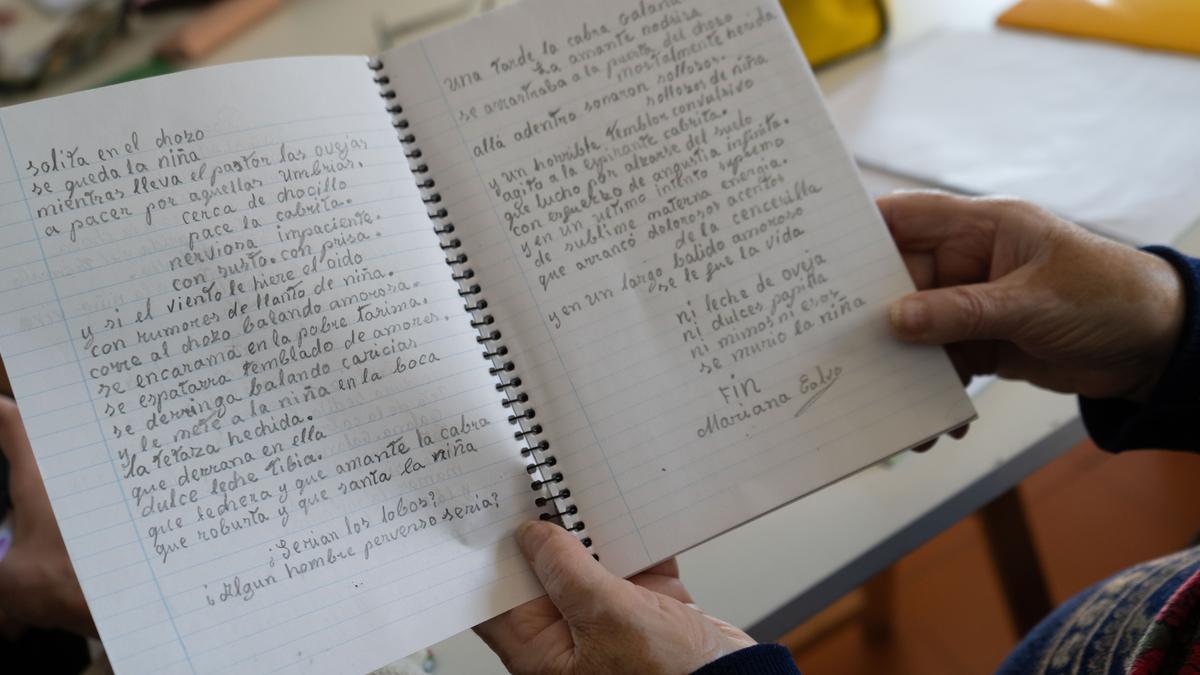 solita en el chozo
se queda la niña
mientras lleva el pastor las ovejas
a pacer por aquellas umbrias.
cerca de chocillo
pace la cabrita.
nerviosa impaciente.
con susto. con prisa.
y si el viento le hiere el oido
con rumores de llanto de niña.
corre al chozo balando amorosa.
se encarama en la pobre tarima.
se espatarra temblado de amores.
se derringa balando caricias
y le mete a la niña en la boca
la tetaza hechida.
que derrana en ella
dulce leche tibia.
que lechera y que amante la cabra
que robusta y que santa la niña
¿Serian los lobos?
¿Algun hombre perverso seria?
una tarde la cabra galana
la amante nodriza
se arrastraba a la puerta del chozo
mortalmente herida
allá adentro sonaron sollozos.
sollozos de niña
y un horrible temblor convulsivo
agito a la espirante cabrita.
que lucho por alzarse del suelo
con esfuerzo de angustia infinita.
y en un ultimo intento supremo
de sublime materna energia.
que arrancó dolorosos acentos
de la cencerilla
y en un largo balido amoroso
se le fue la vida
ni leche de oveja
ni dulces papilla
ni mimos ni esos
se murio la niña
Fin
Mariana Calvo